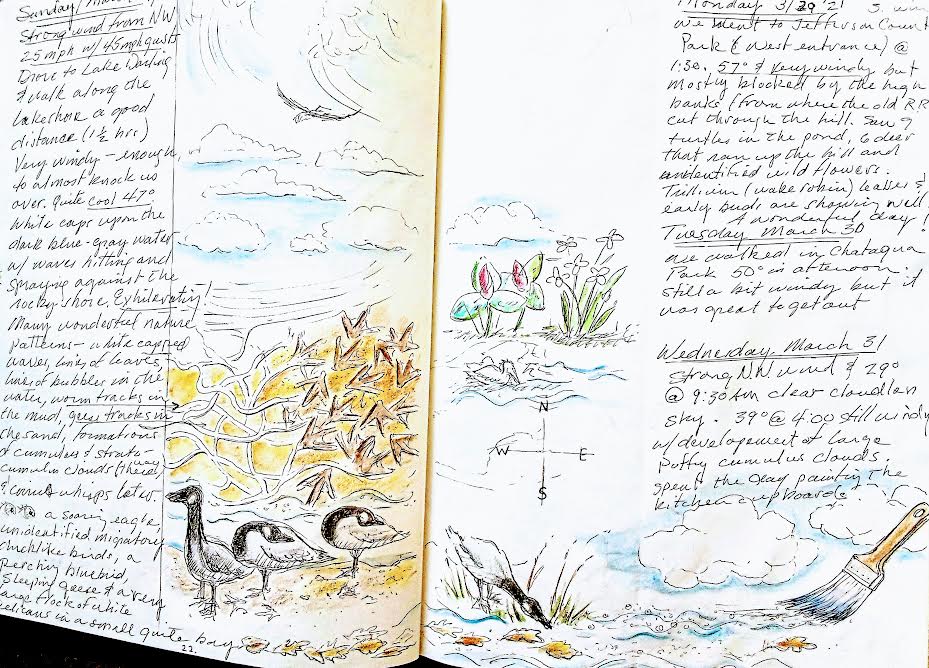 Sunday, March
Strong wind from NW
25 mph w/ 45 mph gusts
Drove to Lake Darling
& walk along the
lakeshore a good
distance (1½ hrs)
Very windy – enough
to almost knock us
over. Quite cool 47°
White caps upon the
dark blue-gray water
w/ waves hitting and
spraying against the
rocky shore. Exhilerating!
Many wonderful nature
patterns – white capped
waves, lines of leaves,
lines of bubbles in the
water, worm tracks in
the mud, geese tracks in
the sand, formations
of cumulus & strato-
cumulus clouds
& whisps later.
a soaring eagle,
unidentified migratory
ducklike birds, a
perching bluebird,
sleeping geese & a very
large flock of white
pelicans in a small quite bay
22.
N
W E
S
Monday 3/29/21
we went to Jefferson County
Park (West entrance) @
1:30. 57° & very windy but
mostly blocked by the high
banks (from where the old RR
cut through the hill. Saw 9
turtles in the pond, 6 deer
that ran up the hill and
unidentified wild flowers.
Trillium (wake robin) leaves &
early buds are showing well.
A wonderful day!
Tuesday March 30
we walked in Chataqua
Park 50° in afternoon.
Still a bit windy but it
was great to get out
Wednesday March 31
Strong NW wind & 29°
@ 9:30 Am clear cloudless
sky. 39° @ 4:00 still windy
w/ development of large
puffy cumulus clouds.
Spent the day painting the
kitchen cupboards